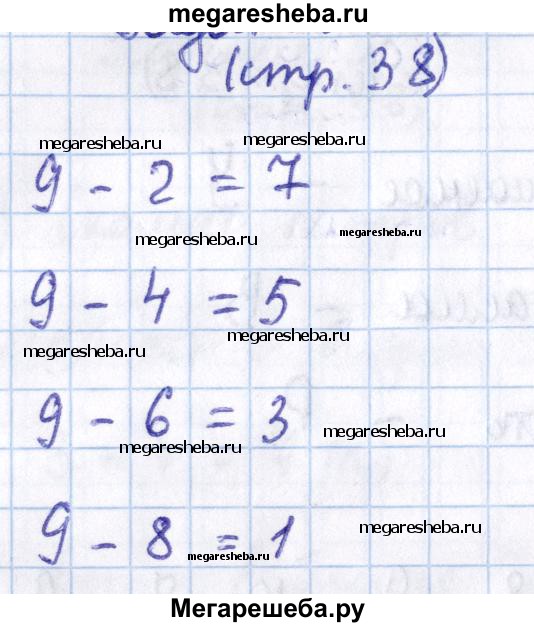 megaresheba.ru
(стр. 38)
megaresheba.ru megaresheba.ru
9 - 2 = 7
megaresheba.ru megaresheba.ru
9 - 4 = 5
megaresheba.ru megaresheba.ru
9 - 6 = 3
megaresheba.ru megaresheba.ru
9 - 8 = 1
megaresheba.ru megaresheba.ru
Мегарешеба.ру